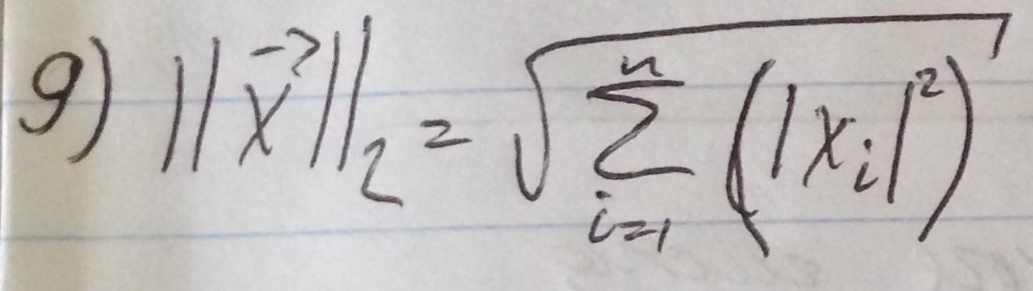 9) ||x⃗||₂ = √(∑ᵢ₌₁ⁿ (|xᵢ|²))